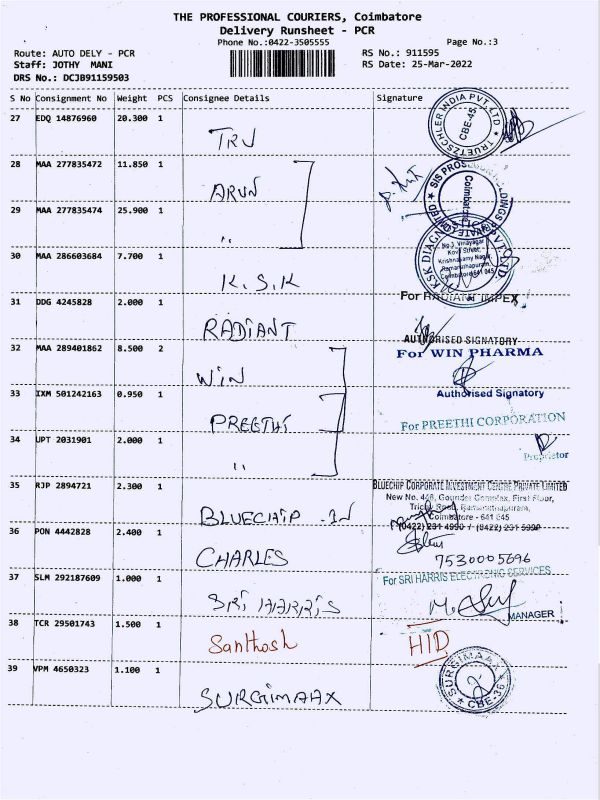 THE PROFESSIONAL COURIERS, Coimbatore
Delivery Runsheet - PCR
Phone No.:0422-3505555
Page No.:3
Route: AUTO DELY - PCR
RS No.: 911595
Staff: JOTHY MANI
RS Date: 25-Mar-2022
DRS No.: DCJB91159503
S No Consignment No Weight PCS Consignee Details Signature
27 EDQ 14876960 20.300 1
TRUETZSCHLER INDIA PVT. LTD
CBE-45
TRU
28 MAA 277835472 11.850 1
ARUN
Coimbatore
29 MAA 277835474 25.900 1
"
30 MAA 286603684 7.700 1
K.S.K
KSK DIAGN
No.3, Vinayagar
Kovil Street,
Krishnasamy Nagar,
Ramanathapuram,
Coimbatore-641 045
31 DDG 4245828 2.000 1
For RADIANT IMPEX
RADIANT
AUTHORISED SIGNATORY
32 MAA 289401862 8.500 2
For WIN PHARMA
WIN
Authorised Signatory
33 IXM 501242163 0.950 1
PREETHI
For PREETHI CORPORATION
34 UPT 2031901 2.000 1
"
Proprietor
35 RJP 2894721 2.300 1
BLUECHIP CORPORATE INVESTMENT CENTRE PRIVATE LIMITED
New No. 448, Gounder Complex, First Floor,
Trichy Road, Ramanathapuram,
Coimbatore - 641 045
BLUECHIP - IN
36 PON 4442828 2.400 1
CHARLES
7530005696
37 SLM 292187609 1.000 1
For SRI HARRIS ELECTRONIC SERVICES
SRI HARRIS
MANAGER
38 TCR 29501743 1.500 1
Santhosh
HID
39 VPM 4650323 1.100 1
SURGIMAAX
SURGIMAAX
CBE-36